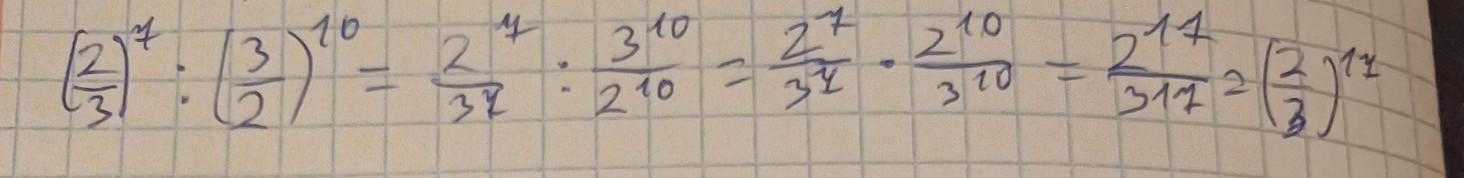 (2/3)^7 : (3/2)^10 = 2^7/3^7 : 3^10/2^10 = 2^7/3^7 · 2^10/3^10 = 2^17/3^17 = (2/3)^17